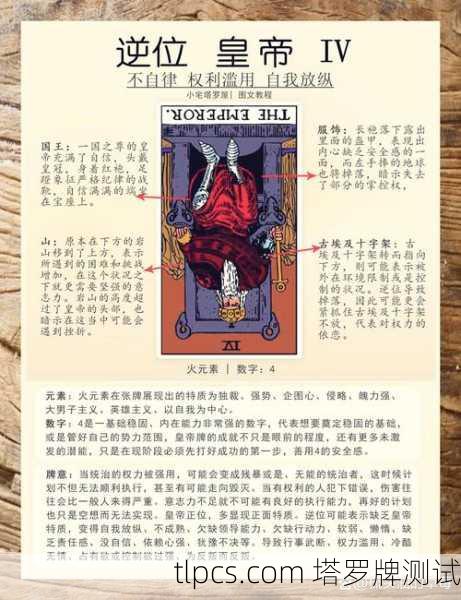 逆位 皇帝 IV
不自律 权利滥用 自我放纵
小宅塔罗屋| 图文教程
THE EMPEROR.
国王：一国之尊的皇
帝充满了自信，头戴
皇冠，身着红袍，足
蹬象征严格纪律的战
靴，自信满满的端坐
在宝座上。
服饰：长袍落下露出
里面的盔甲，表现出
内心缺乏安全感的一
面，而左手捧的地球
也将掉落，暗示失去
了部分的掌控权，
山：原本在下方的岩
山移到了上方，表示
所遇到的困难和挑战
增加，在这个状况之
下就更需要坚强的意
志力。岩山的高度超
过了皇帝的头部，也
暗示在这当中可能会
遇到挫折。
古埃及十字架：古
埃及十字架转而指向
下方，则可能表示被
外在环境限制或是控
制的状况。逆位导致
掉落，因此可能更会
紧抓住古埃及十字架
不放，代表对权力的
依恋。
IV
火元素 | 数字：4
元素：火元素在张牌展现出的特质为独裁、强势、企图心、侵略、魄力强、
大男子主义、英雄主义、以自我为中心。
数字：4是一基础稳固、内在能力非常强的数字，代表想要奠定稳固的基础，
或是管好自己的势力范围，皇帝牌的成就不只是眼前的程度，还有更多未激
发的潜能，只是在现阶段必须先打好成功的第一步，善用4的安全感。
牌意：当统治的权力被强用，可能会变成残暴或是、无能的统治者，这时候计
划不但无法顺利执行，甚至有可能走向毁灭。当有权利的人犯下错误，伤害往
往会比一般人来得严重，意志力不足就不可能有良好的执行能力，再好的计划
也只是空想而无法实现。皇帝正位，多显现正面特质。逆位可能表示缺乏皇帝
特质，变得自我放纵、不成熟、欠缺领导能力、欠缺行动力、软弱、懒惰、缺
乏责任感、没自信、依赖心强、犹豫不决等。导致行事武断、权力滥用、冷酷
无情、占有欲或控制欲过强、为反叛而反叛。
tlpcs.com 塔罗牌测试